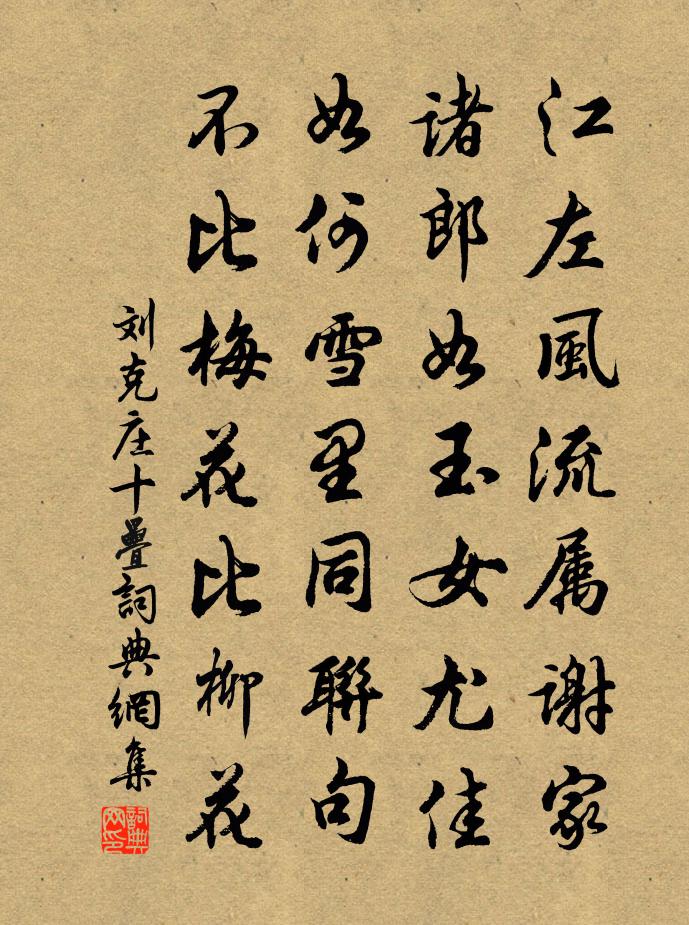 江左風流属谢家
诸郎如玉女尤佳
如何雪里同聯句
不比梅花比柳花
刘克庄十疊詞典網集
詞典网印